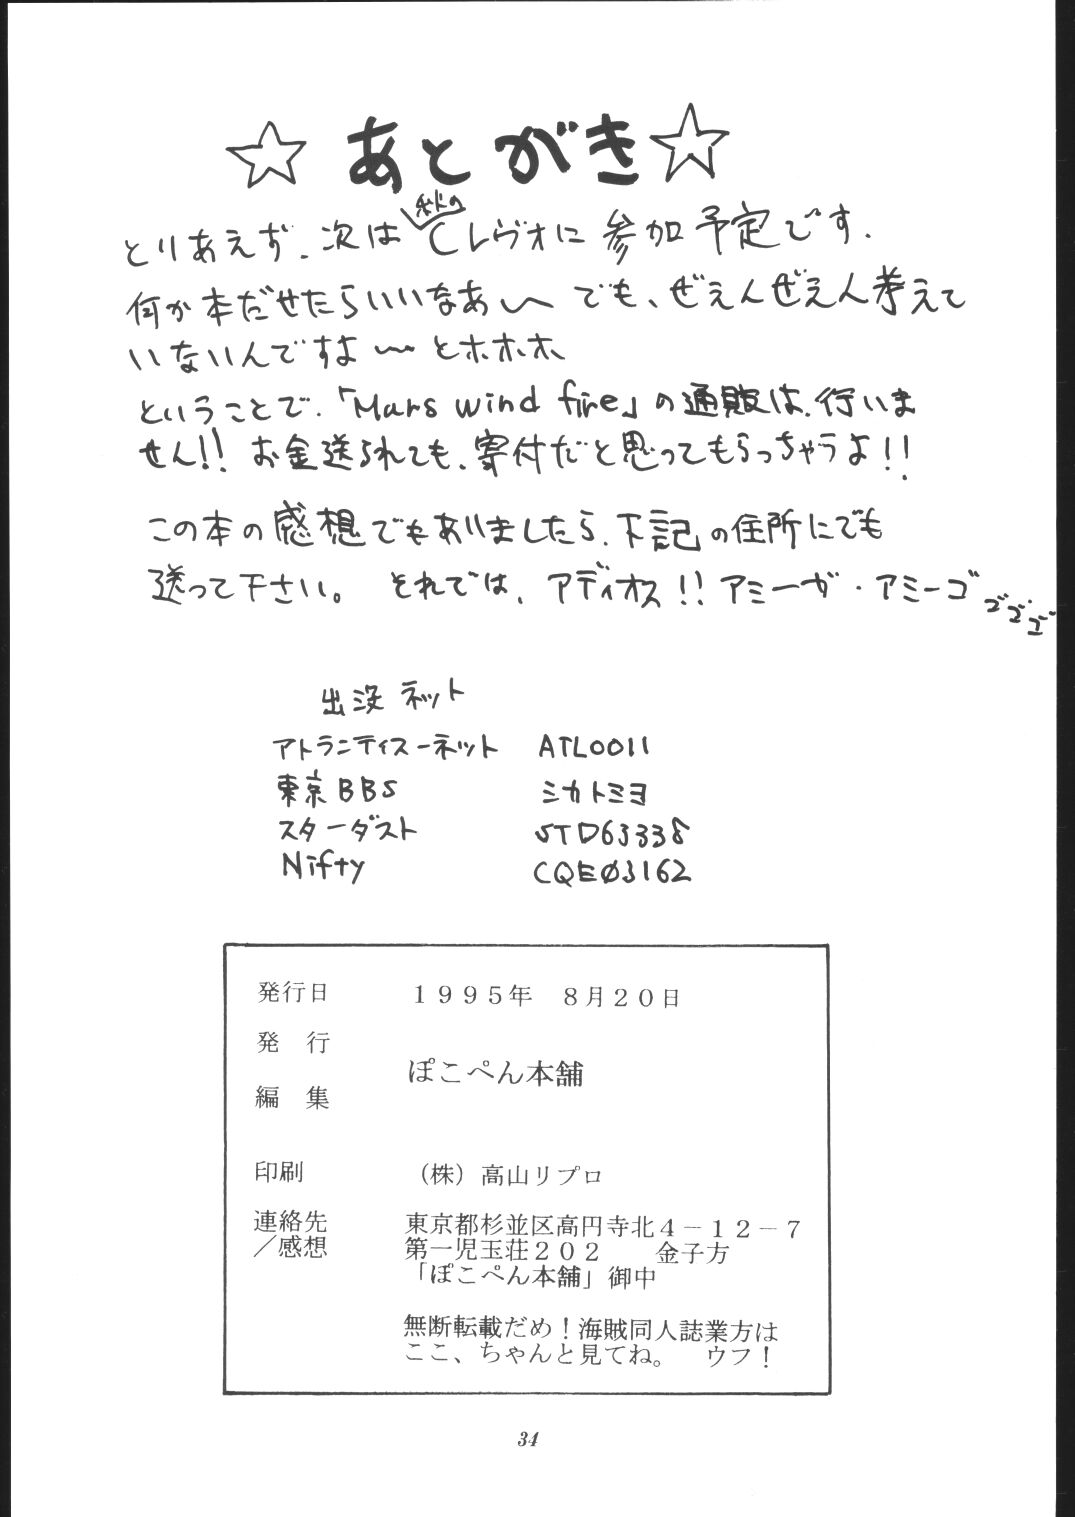 ☆ あとがき ☆
とりあえず、次は秋のCレヴォに参加予定です。
何か本だせたらいいなあ〜 でも、ぜえんぜえん考えて
いないんですよ〜 とホホホ、
ということで、「Mars wind fire」の通販は、行いま
せん!! お金送られても、寄付だと思ってもらっちゃうよ!!
この本の感想でもありましたら、下記の住所にでも
送って下さい。 それでは、アディオス!! アミーガ・アミーゴ ゴゴゴ
出没ネット
アトランティスーネット ATL0011
東京BBS シカトミヨ
スターダスト STD63338
Nifty CQE03162
発行日 1995年 8月20日
発 行
ぽこぺん本舗
編 集
印刷 (株)高山リプロ
連絡先 東京都杉並区高円寺北4-12-7
/感想 第一児玉荘202 金子方
「ぽこぺん本舗」御中
無断転載だめ!海賊同人誌業方は
ここ、ちゃんと見てね。 ウフ!
34